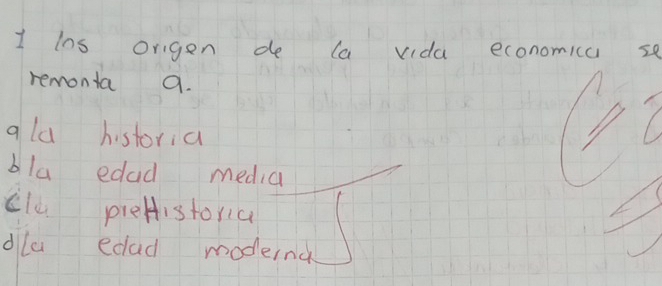 1 los origen de la vida economica se
remonta a.
a la historia
b la edad media
c la preHistoria
d la edad moderna